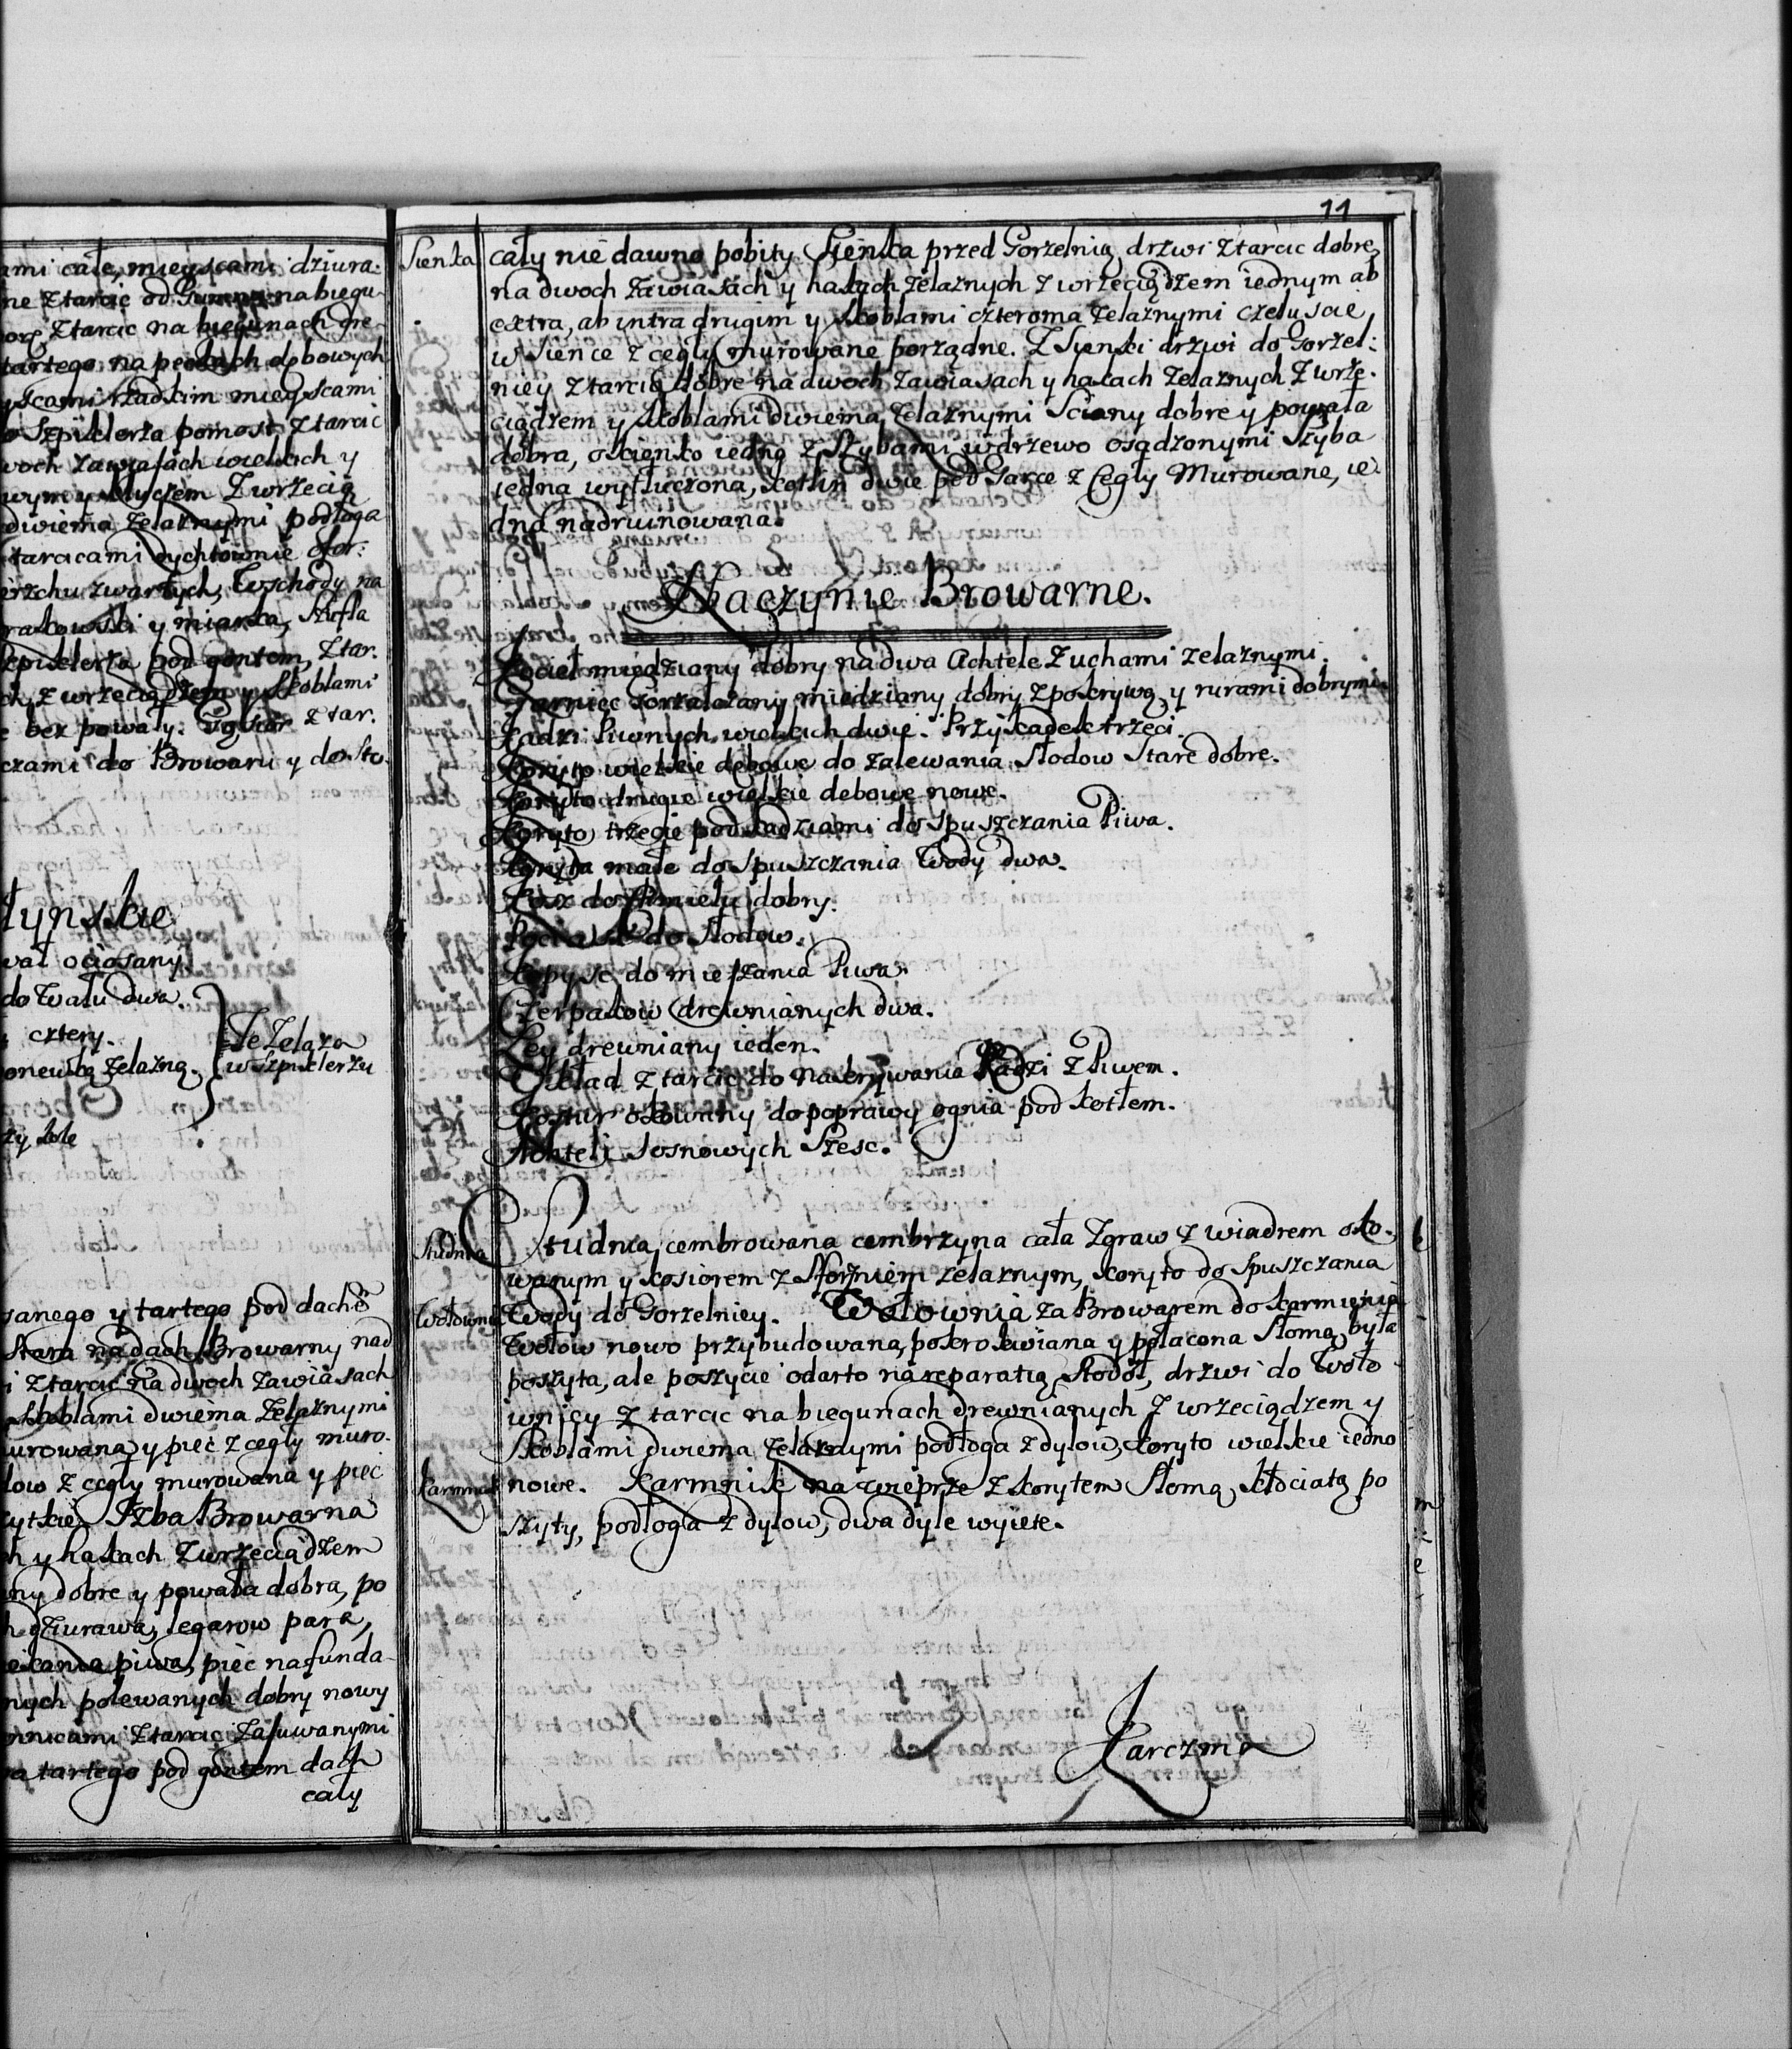 ami całe, mieyscami dziura:
ne z tarcic od Gumna na biegu
z tarcic na biegunach dre-
tartego na peckach dębowych
yscami rzadkim mieyscami
Szpiklerza pomost z tarcic
woch zawiasach wielkich y
wym y kluczem z wrzecią
dwiema żelaznymi podłoga
tarcicami rychtownie ofor:
erzchu zwartych, Wschody na
rakowski y miarka, Szufla
szpiklerza pod gontem, z tar.
ch, z wrzeciądzem y skoblami
bez powały. z tar.
czami do Browaru y do sto.
łynskie
wał ociosany
do Wału dwa.
cztery.
onewką żelazną.
Te Zelaza
w szpiklerzu
zy kole
sanego y tartego pod dachē
stara na dach Browarny nad
i z tarcic na dwoch zawiasach
skoblami dwiema żelaznymi
urowana y piec z cegły muro.
low z cegły murowana y piec
zytkie, Izba Browarna
h y hakach z wrzeciądzem
any dobre y powała dobra, po
dziurawa, legarow para,
piwa, piec na funda-
nych polewanych dobry nowy
nnicami z tarcic zasuwanymi
a tartego pod gontem dach
cały
11
Sienka
cały nie dawno pobity. Sienka przed Gorzelnią, drzwi z tarcic dobre,
na dwoch zawiasach y hakach żelaznych z wrzeciądzem iednym ab
extra, ab intra drugim y skoblami czteroma żelaznymi czeluscie
w sience z cegły murowane porządne. Z Sienki drzwi do Gorzel:
niey z tarcic dobre na dwoch zawiasach y hakach żelaznych z wrze.
ciądzem y skoblami dwiema żelaznymi Sciany dobre y powała
dobra, okienko iedno z szybami w drzewo osądzonymi szyba
iedna wytłuczona, kotlin dwie pod Garce z Cegły Murowane, ie
dna nadruinowana.
Naczynie Browarne.
Kocieł miedziany dobry na dwa Achtele z uchami żelaznymi.
Garniec Gorzałczany miedziany dobry z pokrywą y rurami dobrymi.
Kadzi Piwnych wielkich dwie. Przykadek trzeci.
Koryto wielkie dębowe do zalewania Słodow Stare dobre.
Koryto drugie wielkie debowe nowe.
Koryto trzecie pod kadziami do spuszczania Piwa.
Koryta małe do spuszczania Wody dwa.
Kosz do Chmielu dobry.
do Słodow.
Kopysc do mieszania Piwa.
Czerpakow drewnianych dwa.
Ley drewniany ieden.
Okład z tarcic do nakrywania Kadzi z Piwem.
Kostur okowany do poprawy ognia pod kotłem.
Achteli Sosnowych Szesc.
Studnia
Studnia cembrowana cembrzyna cała Zgraw z wiadrem oko.
wanym y kosiorem z sforzniem żelaznym, koryto do spuszczania
Wołownia
Wody do Gorzelniey. Wołownia za Browarem do karmienia
Wołow nowo przybudowana, pokrokwiana y połacona Słomą była
poszyta, ale poszycie odarto na reparatią stodoł, drzwi do Woło
wnicy z tarcic na biegunach drewnianych z wrzeciądzem y
Skoblami dwiema żelaznymi podłoga z dylow, koryto wielkie iedno
Karmnik
nowe. Karmnik na wieprze z korytem Słomą kłociatą po
szyty, podłoga z dylow, dwa dyle wyięte.
Karczma